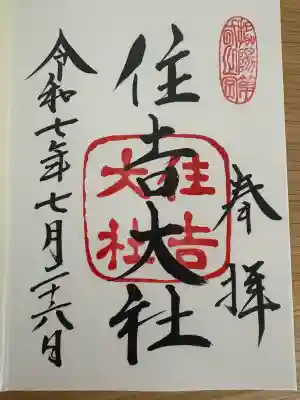 奉拝
住吉大社
住吉大社
令和七年七月二十八日